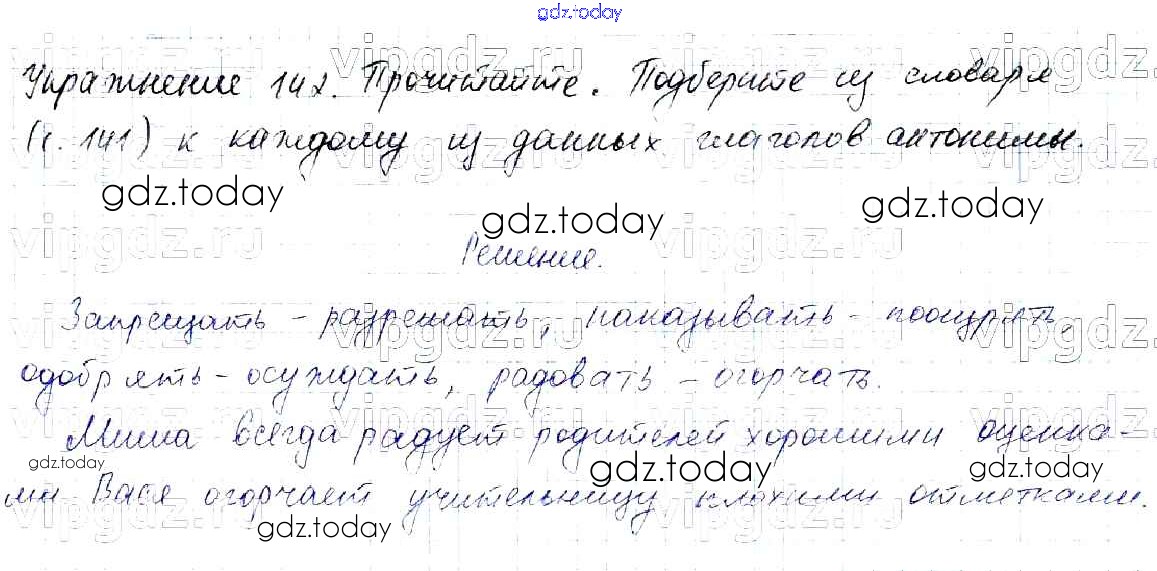 gdz.today
Упражнение 142. Прочитайте. Подберите из словаря
(с. 141) к каждому из данных глаголов антонимы.
gdz.today gdz.today gdz.today
Решение.
Запрещать – разрешать, наказывать – поощрять,
одобрять – осуждать, радовать – огорчать.
Миша всегда радует родителей хорошими оценка-
gdz.today gdz.today gdz.today
ми Вася огорчает учительницу плохими отметками.
gdz.today
vipgdz.ru